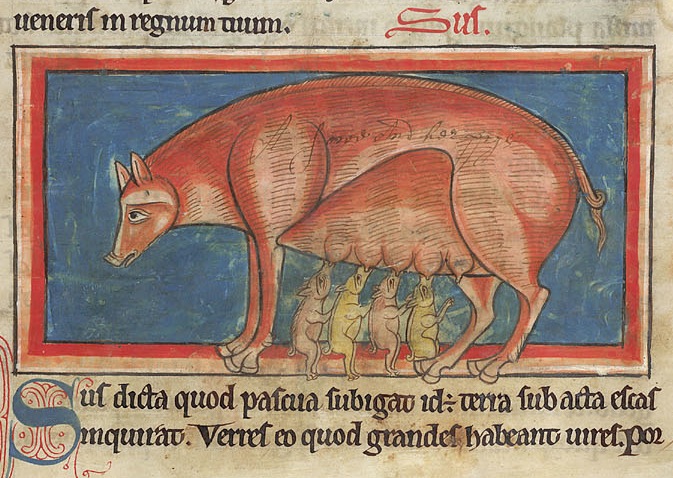 ueneris in regnum tuum. Sus.
Sus dicta quod pascua subigat id÷ terra sub acta escas
inquirat. Verres eo quod grandes habeant uires. Por